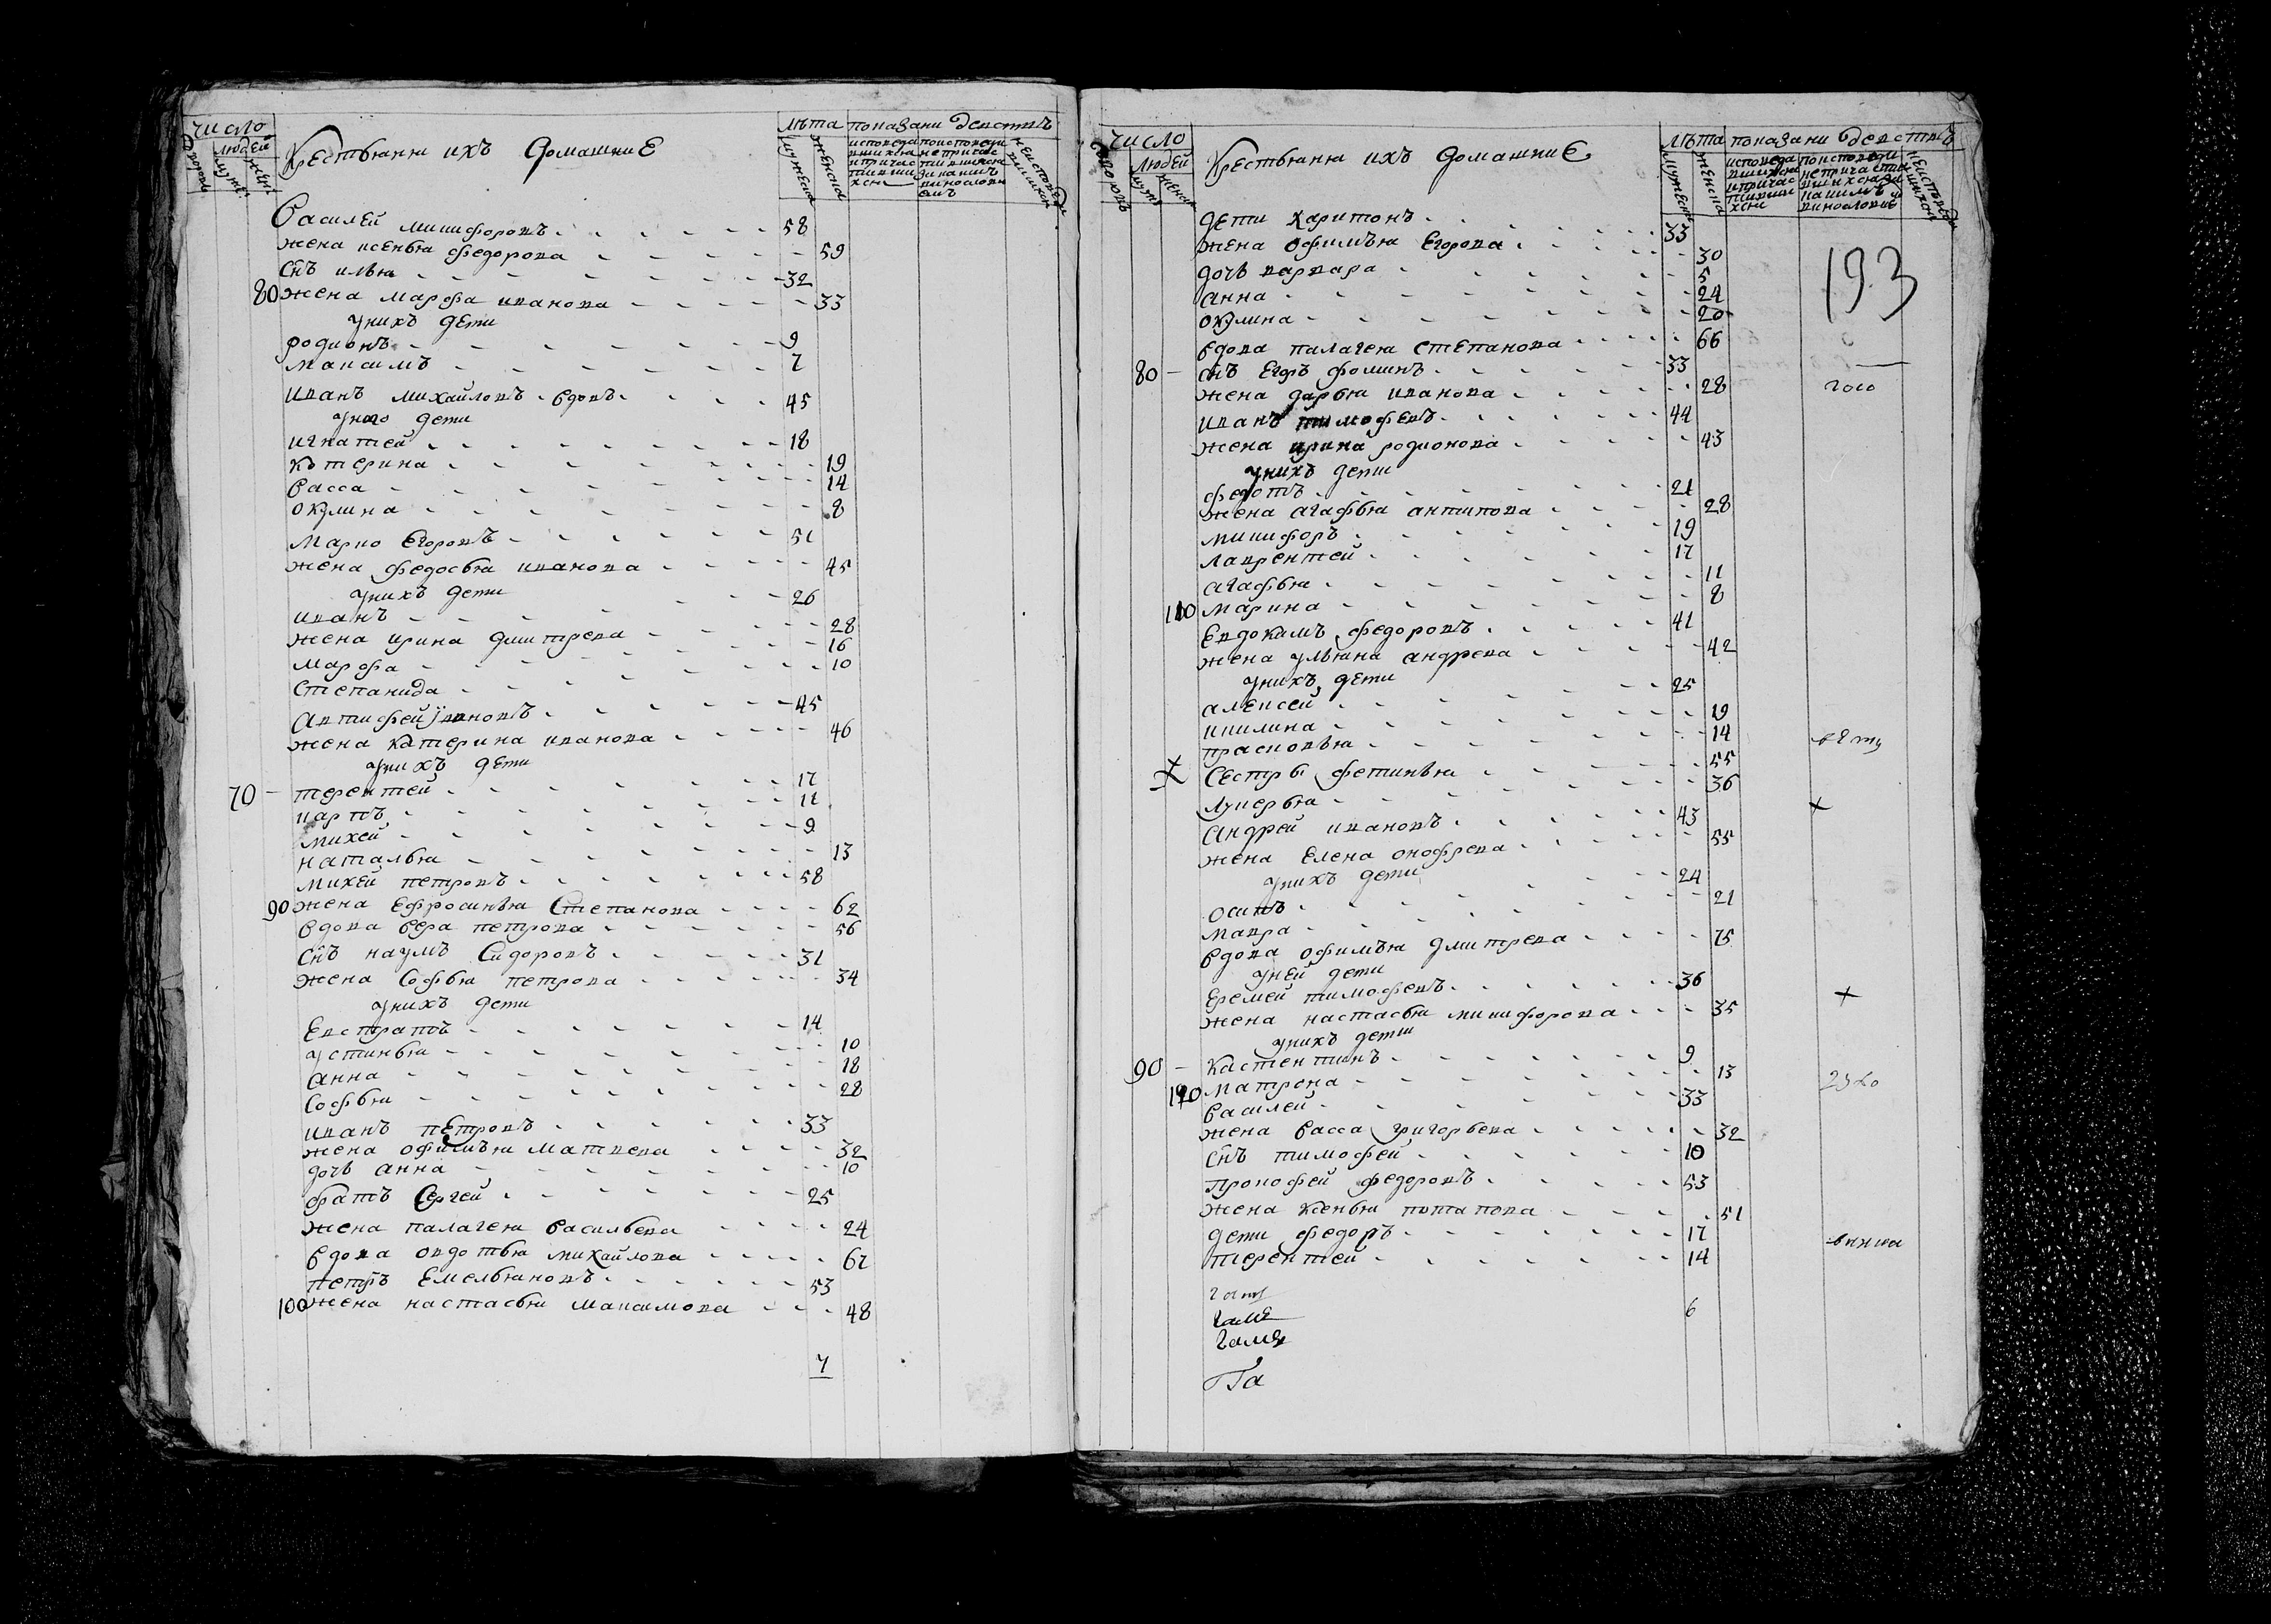 число
людей
дворовъ
мужес
женс
Крестьяня ихъ домашние
лѣта
показани действъ
мужеска
женска
Василей никифоровъ 58
жена ксенья федорова 59
снъ илья 32
80 жена марфа иванова 33
у нихъ дети
родионъ 9
максимъ 7
иванъ михайловъ вдовъ 45
у него дети
игнатей 18
катерина 19
васса 14
окулина 8
марко егоровъ 51
жена федосья иванова 45
у нихъ дети
иванъ 26
жена ирина дмитрева 28
марфа 16
степанида 10
Автифей ивановъ 45
жена катерина иванова 46
у нихъ дети
70 терентей 17
карпъ 11
михей 9
наталья 13
михей петровъ 58
90 жена ефросинья Степанова 62
вдова вера петрова 56
снъ наумъ Сидоровъ 31
жена софья петрова 34
у нихъ дети
Евстратъ 14
устинья 10
анна 18
софья 28
иванъ петровъ 33
жена офимья матвеева 32
дочь анна 10
братъ Сергей 25
жена палагея васильева 24
вдова овдотья михайлова 67
петръ Емельяновъ 53
100 жена настасья максимова 48
7
число
людей
мужес
женск
Крестьяня ихъ домашние
лѣта
показани действъ
мужеска
женска
193
дети харитонъ 33
жена офимья Егорова 30
дочь варвара 5
анна 24
окулина 20
вдова палагея степанова 66
80 снъ Егоръ фоминъ 33
жена дарья иванова 28
иванъ тимофевъ 44
жена ирина родионова 43
у нихъ дети
федотъ 21
жена агафья антипова 28
никифоръ 19
лаврентей 17
агафья 11
110 марина 8
Евдокимъ федоровъ 41
жена ульяна андрева 42
у нихъ дети
алексей 25
килина 19
прасковья 14
Сестры фетинья 55
лукерья 36
Андрей ивановъ 43
жена елена онофрева 55
у нихъ дети
осипъ 24
мавра 21
вдова офимья дмитрева 75
у ней дети
Еремей тимофевъ 36
жена настасья никифорова 35
у нихъ дети
90 Кастентинъ 9
120 матрона 13
василей 33
жена васса григорьева 32
снъ тимофей 10
прокофей федоровъ 53
жена ксенья потапова 51
дети федоръ 17
терентей 14
6